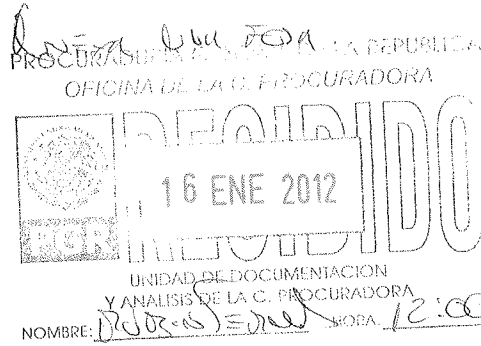 PROCURADURIA LA REPUBLICA
OFICINA DE LA C. PROCURADORA
RECIBIDO
16 ENE 2012
PGR
UNIDAD DE DOCUMENTACION
Y ANALISIS DE LA C. PROCURADORA
NOMBRE: HORA: 12:00